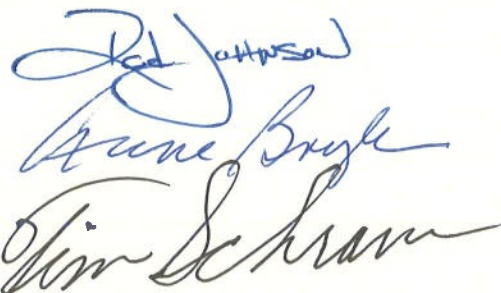 Rod Johnson
Anne Boyle
Tim Schram